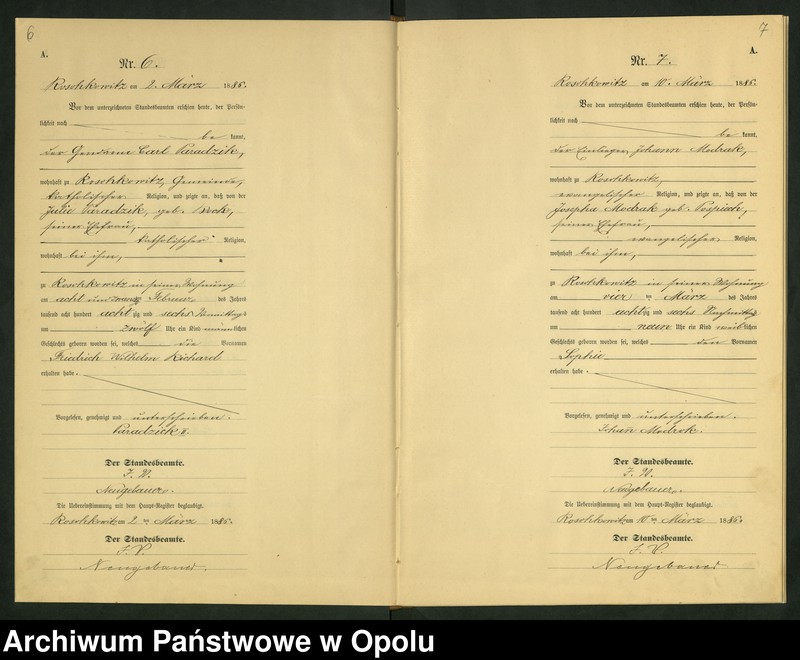 6
A.
Nr. 6.
Roschkowitz am 2. März 1886.
Vor dem unterzeichneten Standesbeamten erschien heute, der Persön-
lichkeit nach
be kannt,
der Gendarme Carl Paradzik,
wohnhaft zu Roschkowitz, Gemeinde,
katholischer Religion, und zeigte an, daß von der
Julie Paradzik, geb.
seiner Ehefrau,
katholischer Religion,
wohnhaft bei ihm,
zu Roschkowitz in seiner Wohnung
am acht und zwanzig Februar des Jahres
tausend acht hundert achtzig und sechs Vormittags
um zwölf Uhr ein Kind männlichen
Geschlechts geboren worden sei, welches die Vornamen
Friedrich Wilhelm Richard
erhalten habe.
Vorgelesen, genehmigt und unterschrieben.
Paradzick
Der Standesbeamte.
J. V.
Neugebauer.
Die Uebereinstimmung mit dem Haupt-Register beglaubigt.
Roschkowitz am 2 ten März 1886.
Der Standesbeamte.
J. V.
Neugebauer.
7
A.
Nr. 7.
Roschkowitz am 10. März 1886.
Vor dem unterzeichneten Standesbeamten erschien heute, der Persön-
lichkeit nach
be kannt,
der Einlieger Johann Modrak,
wohnhaft zu Roschkowitz,
evangelischer Religion, und zeigte an, daß von der
Josepha Modrak geb. Pospiech,
seiner Ehefrau,
evangelischer Religion,
wohnhaft bei ihm,
zu Roschkowitz in seiner Wohnung
am vier ten März des Jahres
tausend acht hundert achtzig und sechs Nachmittag
um neun Uhr ein Kind weiblichen
Geschlechts geboren worden sei, welches den Vornamen
Sophie
erhalten habe.
Vorgelesen, genehmigt und unterschrieben.
Johann Modrok.
Der Standesbeamte.
J. V.
Neugebauer.
Die Uebereinstimmung mit dem Haupt-Register beglaubigt.
Roschkowitz am 10 ten März 1886.
Der Standesbeamte.
J. V.
Neugebauer
Archiwum Państwowe w Opolu